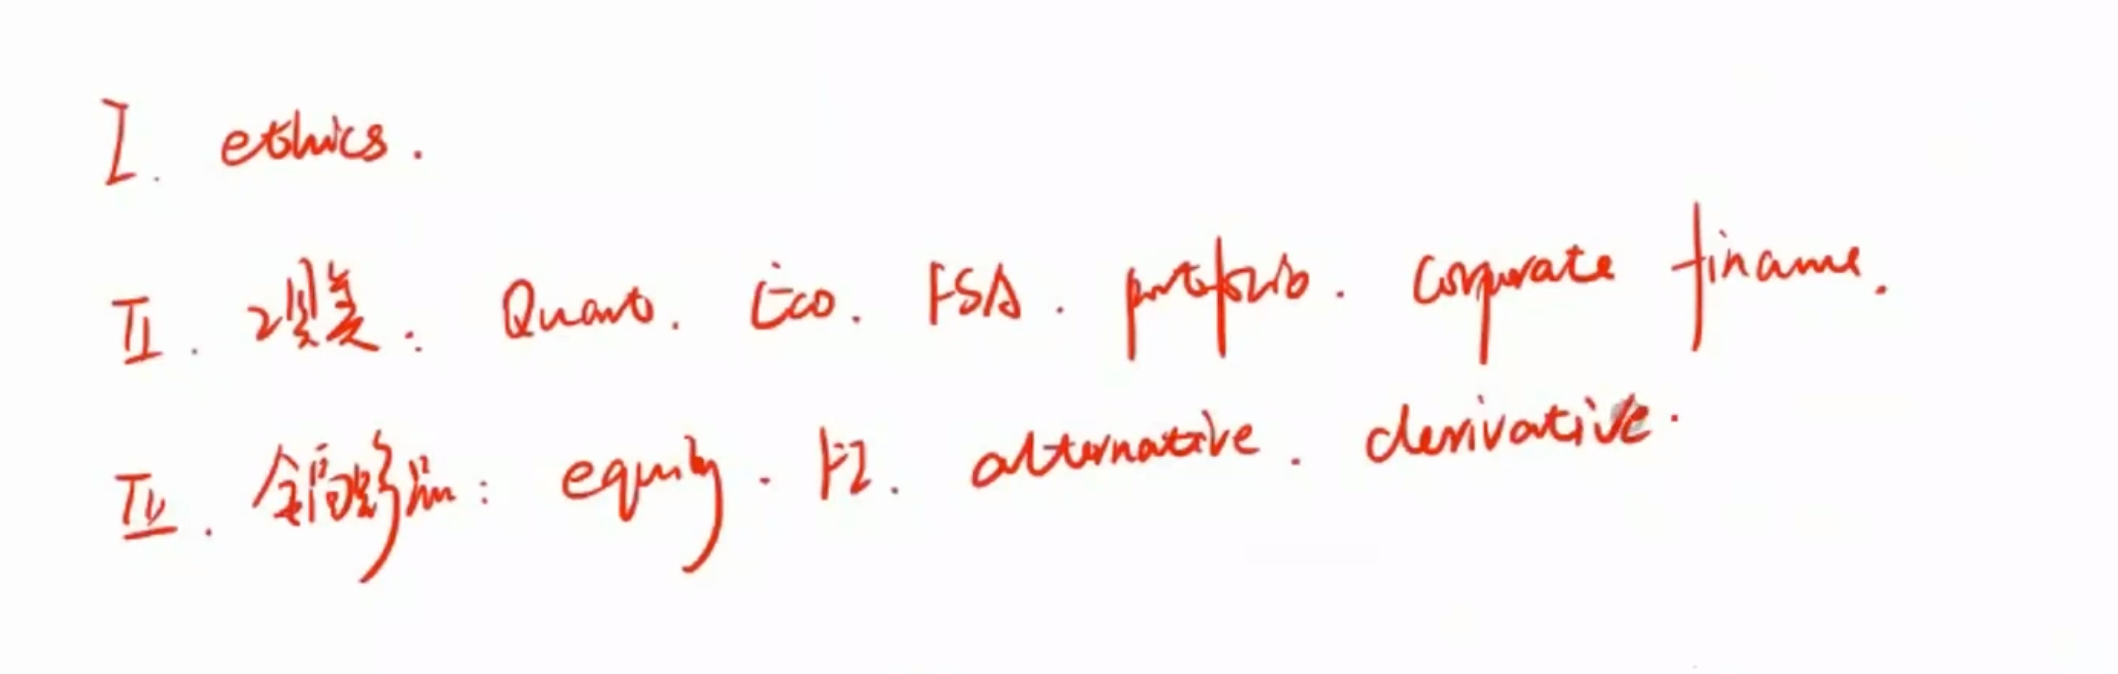 I. ethics.
II. 工具类: Quant. Eco. FSA. portfolio. corporate finance.
III. 金融产品: equity. FI. alternative. derivative.